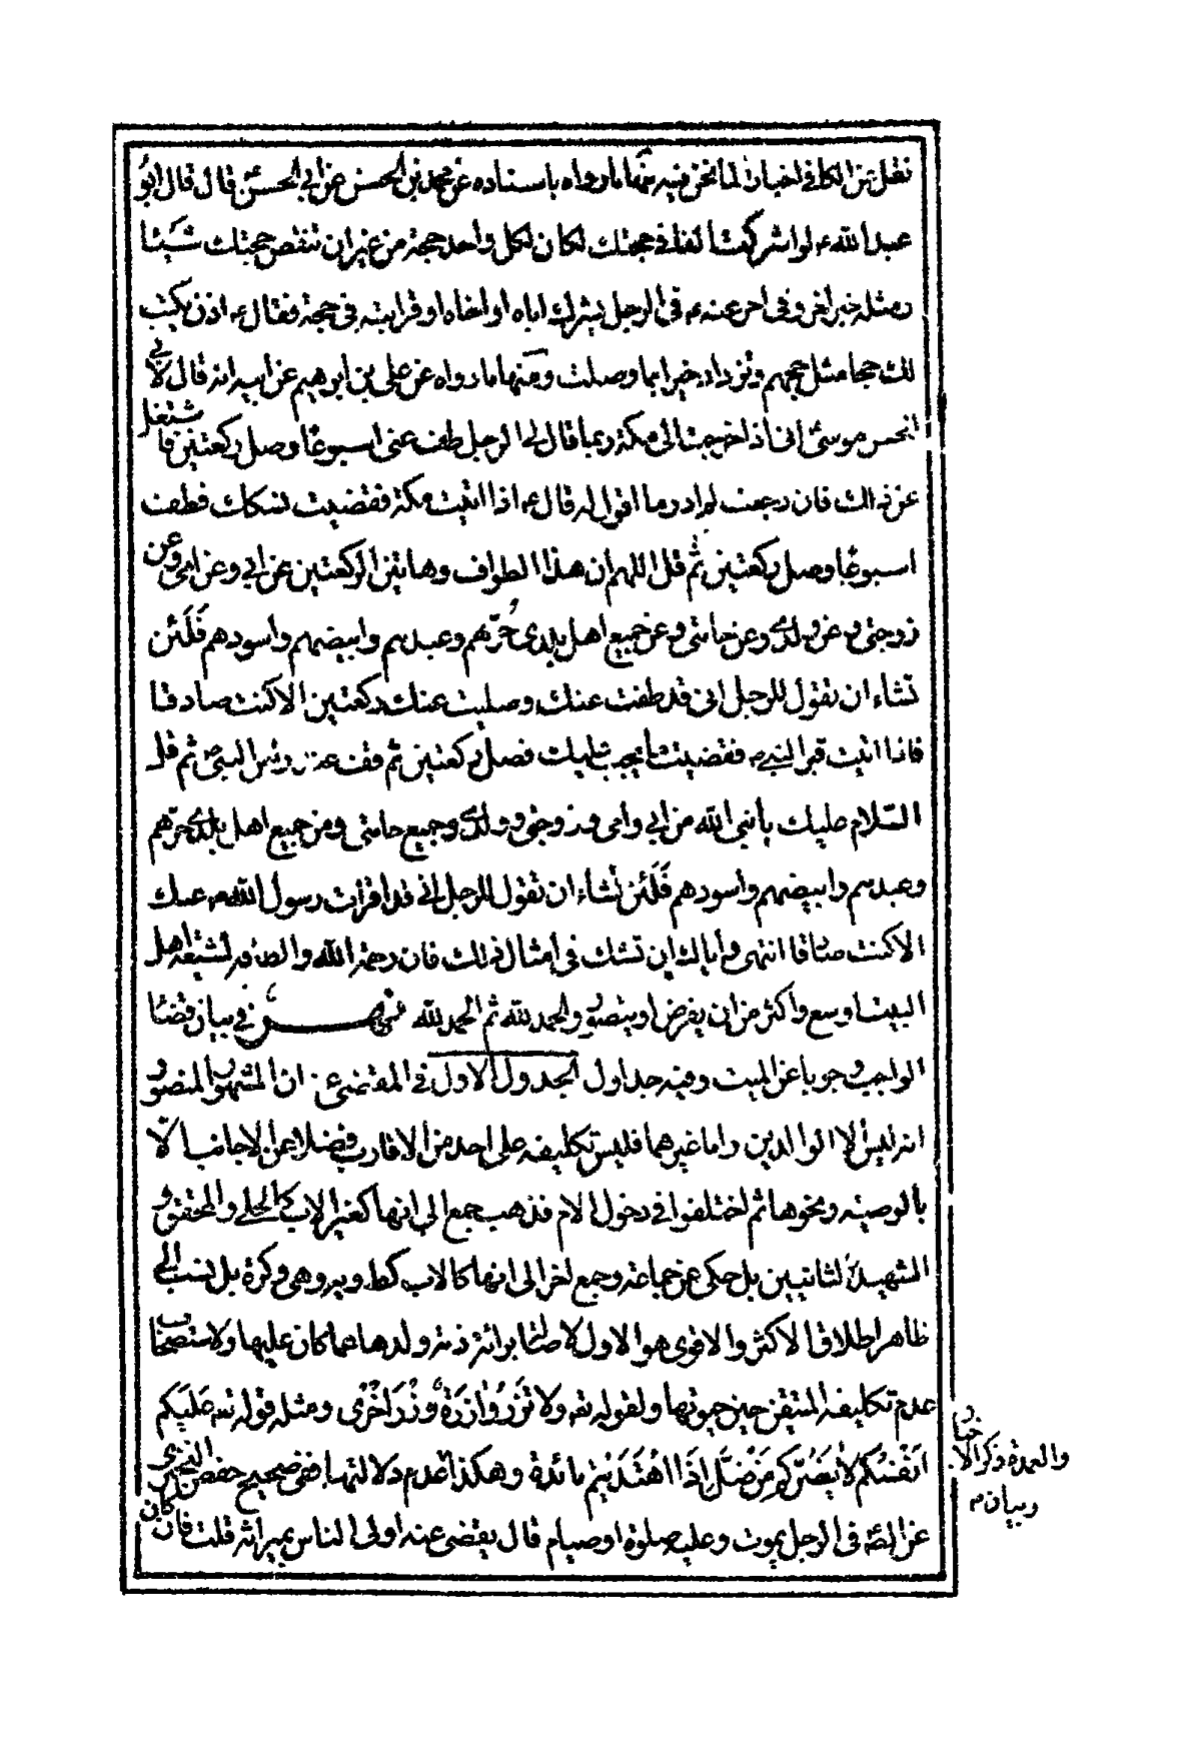 نقل عن الكافى اخبارا لما نحن فيه منها ما رواه باسناده عن محمد بن الحسن عن ابى الحسن ع قال قال ابو
عبد الله ع لو اشركت الفا فى حجتك لكان لكل واحد حجة من غير ان تنقص حجتك شيئا
و مثله خبر اخر و فى اخر عنه ع فى الرجل يشرك اباه او اخاه او قرابته فى حجة فقال ع اذن يكتب
لك حجا مثل حجهم و تزداد خيرا بما وصلت و منها ما رواه عن على بن ابرهيم عن ابيه انه قال لابى
الحسن موسى ع انى اذا خرجت الى مكة ربما قال لى الرجل طف عنى اسبوعا و صل ركعتين فاشتغل
عن ذلك فان رجعت لم ادر ما اقول له قال ع اذا اتيت مكة فقضيت نسكك فطف
اسبوعا و صل ركعتين ثم قل اللهم ان هذا الطواف و هاتين الركعتين عن ابى و عن امى و عن
زوجتى و عن ولدى و عن حامتى و عن جميع اهل بلدى حرّهم و عبدهم و ابيضهم و اسودهم فَلَئن
تشاء ان تقول للرجل انى قد طفت عنك و صليت عنك ركعتين الا كنت صادقا
فاذا اتيت قبر النبى ص فقضيت ما يجب عليك فصل ركعتين ثم قف عند رئس النبى ص ثم قل
السّلام عليك يا نبى الله من ابى و امى و زوجتى و ولدى و جميع حامتى و من جميع اهل بلدى حرّهم
و عبدهم و ابيضهم و اسودهم فَلَئن تشاء ان تقول للرجل انى قد اقرات رسول الله ص عنك
الا كنت صادقا انتهى و اياك ان تشك فى امثال ذلك فان رحمة الله و الطافه لشيعة اهل
البيت اوسع و اكثر من ان يفرض او يتصور و الحمد لله ثم الحمد لله نهر فى بيان قضاء
الواجب وجوبا عن الميت و فيه جداول الجدول الاول فى المقتضى عنه ان المشهور المنصور
انه ليس الا الوالدين و اما غيرهما فليس تكليفه على احد من الاقارب فضلا عن الاجانب الّا
بالوصيته و نحوها ثم اختلفوا فى دخول الام فذهب جمع الى انها كغير الاب كالحلى و المحقق و
الشهيد الثانيين بل حكى عن جماعة و جمع اخر الى انها كالاب كط و يه و هى و كرة بل نسب الى
ظاهر اطلاق الاكثر و الاقوى هو الاول لاصالة برائة ذمة ولدها عما كان عليها و لاستصحاب
عدم تكليفه المتيقن حين حيوتها و لقوله تعه و لا تَزِرُ وٰازِرَةٌ وِزْرَ اخْرٰى و مثله قوله تعه عَلَيكم
اَنْفُسَكم لاٰ يَضُرّكم مَنْ ضَلَّ اِذَا اهْتَدَيْتم مائدة و هكذا لعدم دلالتها ففى صحيح حفص بن البخترى
عن الصّه فى الرجل يموت و عليه صلوة او صيام قال يقضى عنه اولى الناس بميراثه قلت فان كان
و العمدة ذكر الاخبار
و بيان م